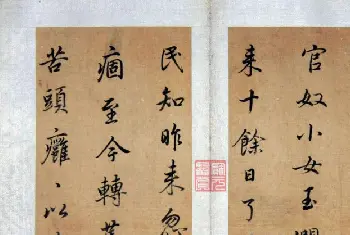 官奴小女玉
來十餘日了
民知昨来忽
痼至今轉
苦頭癰〻以